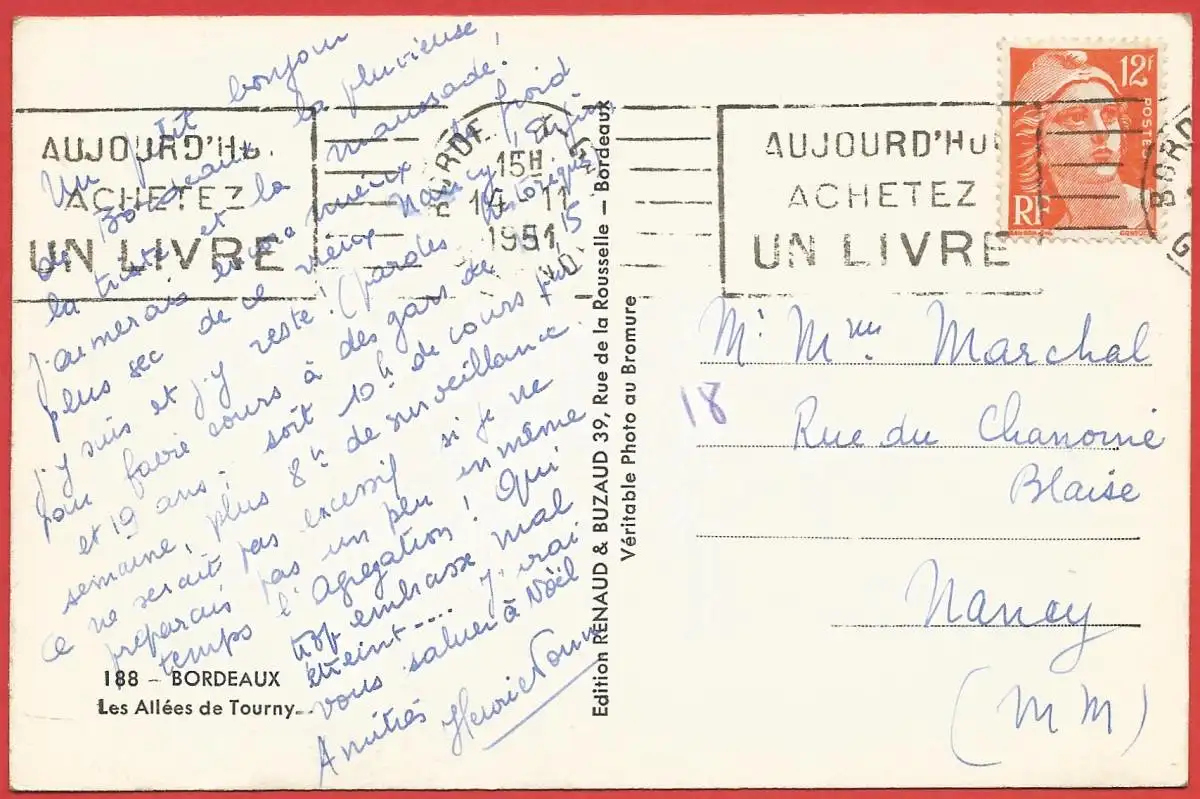 Un petit bonjour
de Bordeaux la pluvieuse,
la triste et la maussade!
J'aimerais encore mieux le froid
plus sec de ce vieux Nancy! Enfin
j'y suis et j'y reste! (pardes
pour faire cours à des gars de 15
et 19 ans; soit 10h de cours par
semaine, plus 8h de surveillance.
Ce ne serait pas excessif si je ne
préparais pas un peu en même
temps l'Agrégation! Qui
trop embrasse mal
étreint.... J'irai
vous saluer à Noël
Amitiés
188 - BORDEAUX
Les Allées de Tourny
Edition RENAUD & BUZAUD 39, Rue de la Rousselle - Bordeaux
Véritable Photo au Bromure
AUJOURD'HU
ACHETEZ
UN LIVRE
BORDE
15H
14-11
1951
AUJOURD'HU
ACHETEZ
UN LIVRE
BORD
G
12f
POSTES
RF
18
Mr Mme Marchal
Rue du Chanoine
Blaise
Nancy
(M M)